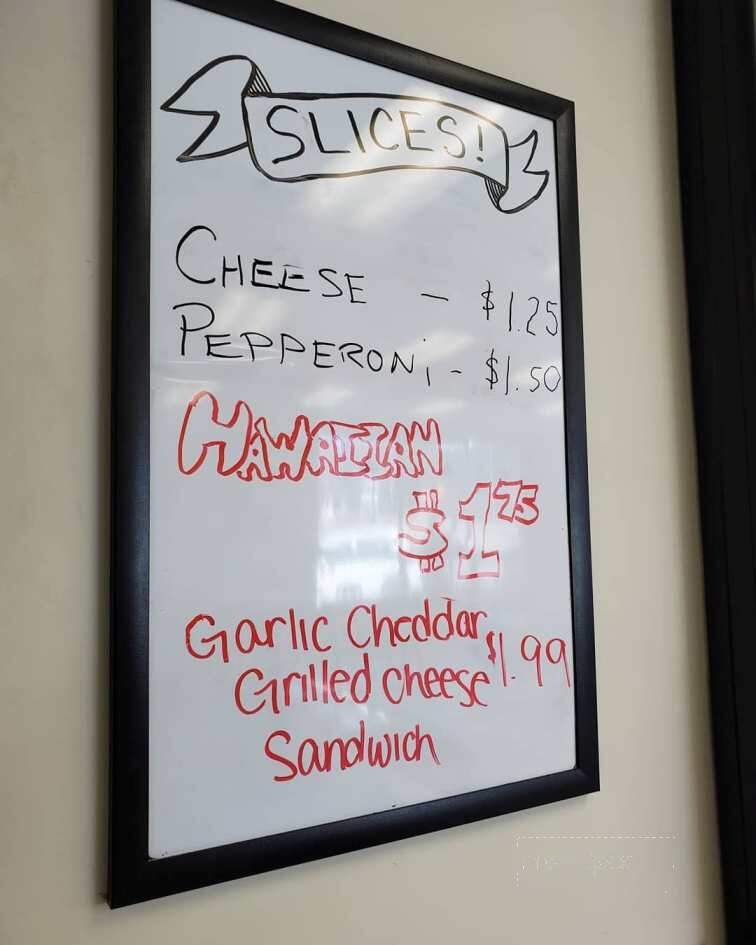 SLICES!
CHEESE - $1.25
PEPPERONi - $1.50
HAWAIIAN
$1.75
Garlic Cheddar
Grilled cheese $1.99
Sandwich